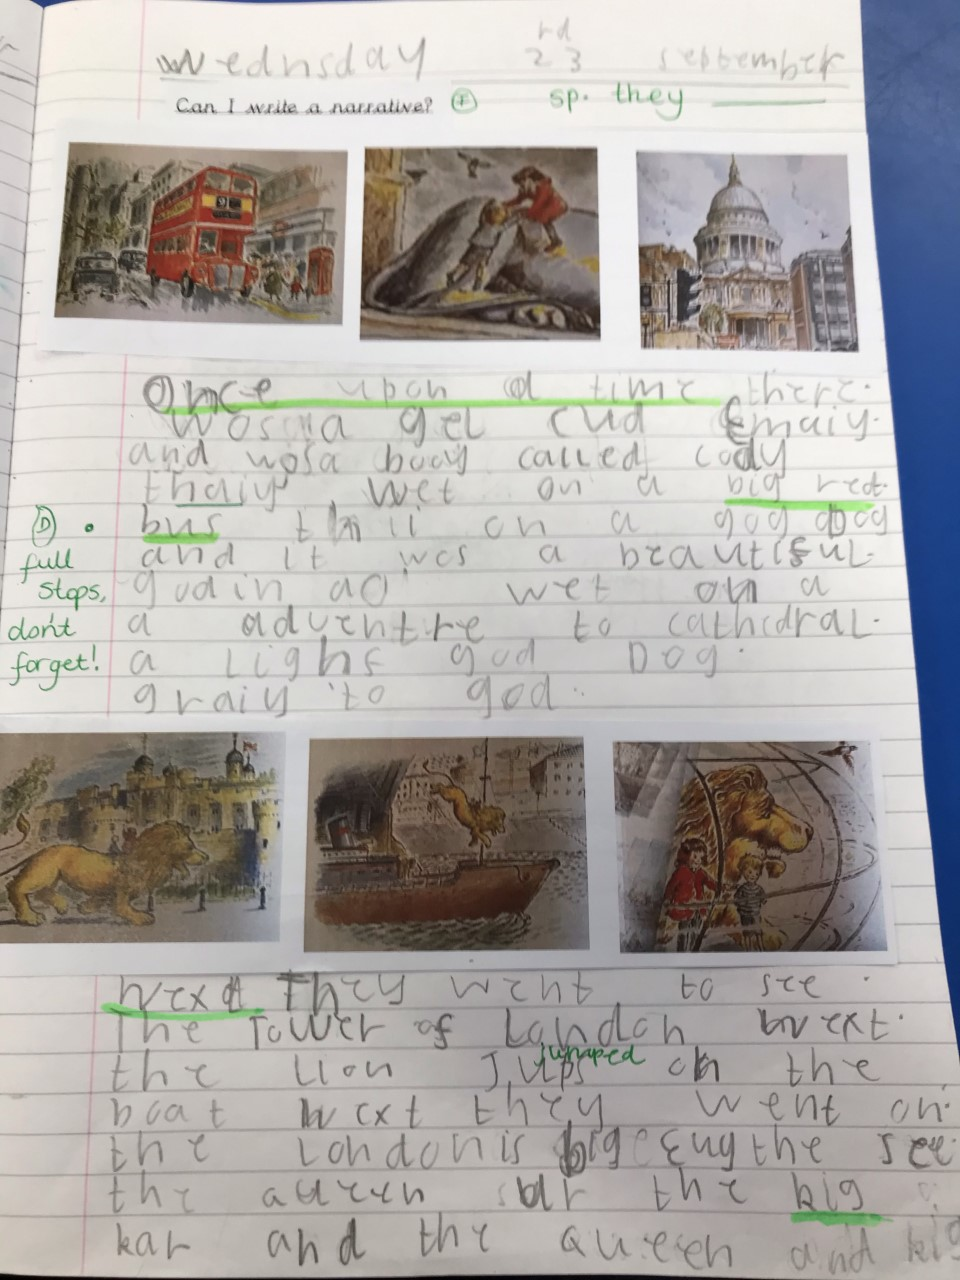 Wednsday 23rd september
Can I write a narrative? sp. they
9
Once upon a time there.
Wos a gel cud Emaiy.
and wosa booy called cody
thaiy wet on a big red.
bus
and it wos a beautisful.
wet on a
a adventre to cathedral.
a god Dog.
graiy to god.
D .
full
stops,
don't
forget!
next They went to see .
The Tower of London next.
the Lion Jumped on the
boat next they went on.
the London is big Eug the see.
the queen sur the big
kar and the Queen and